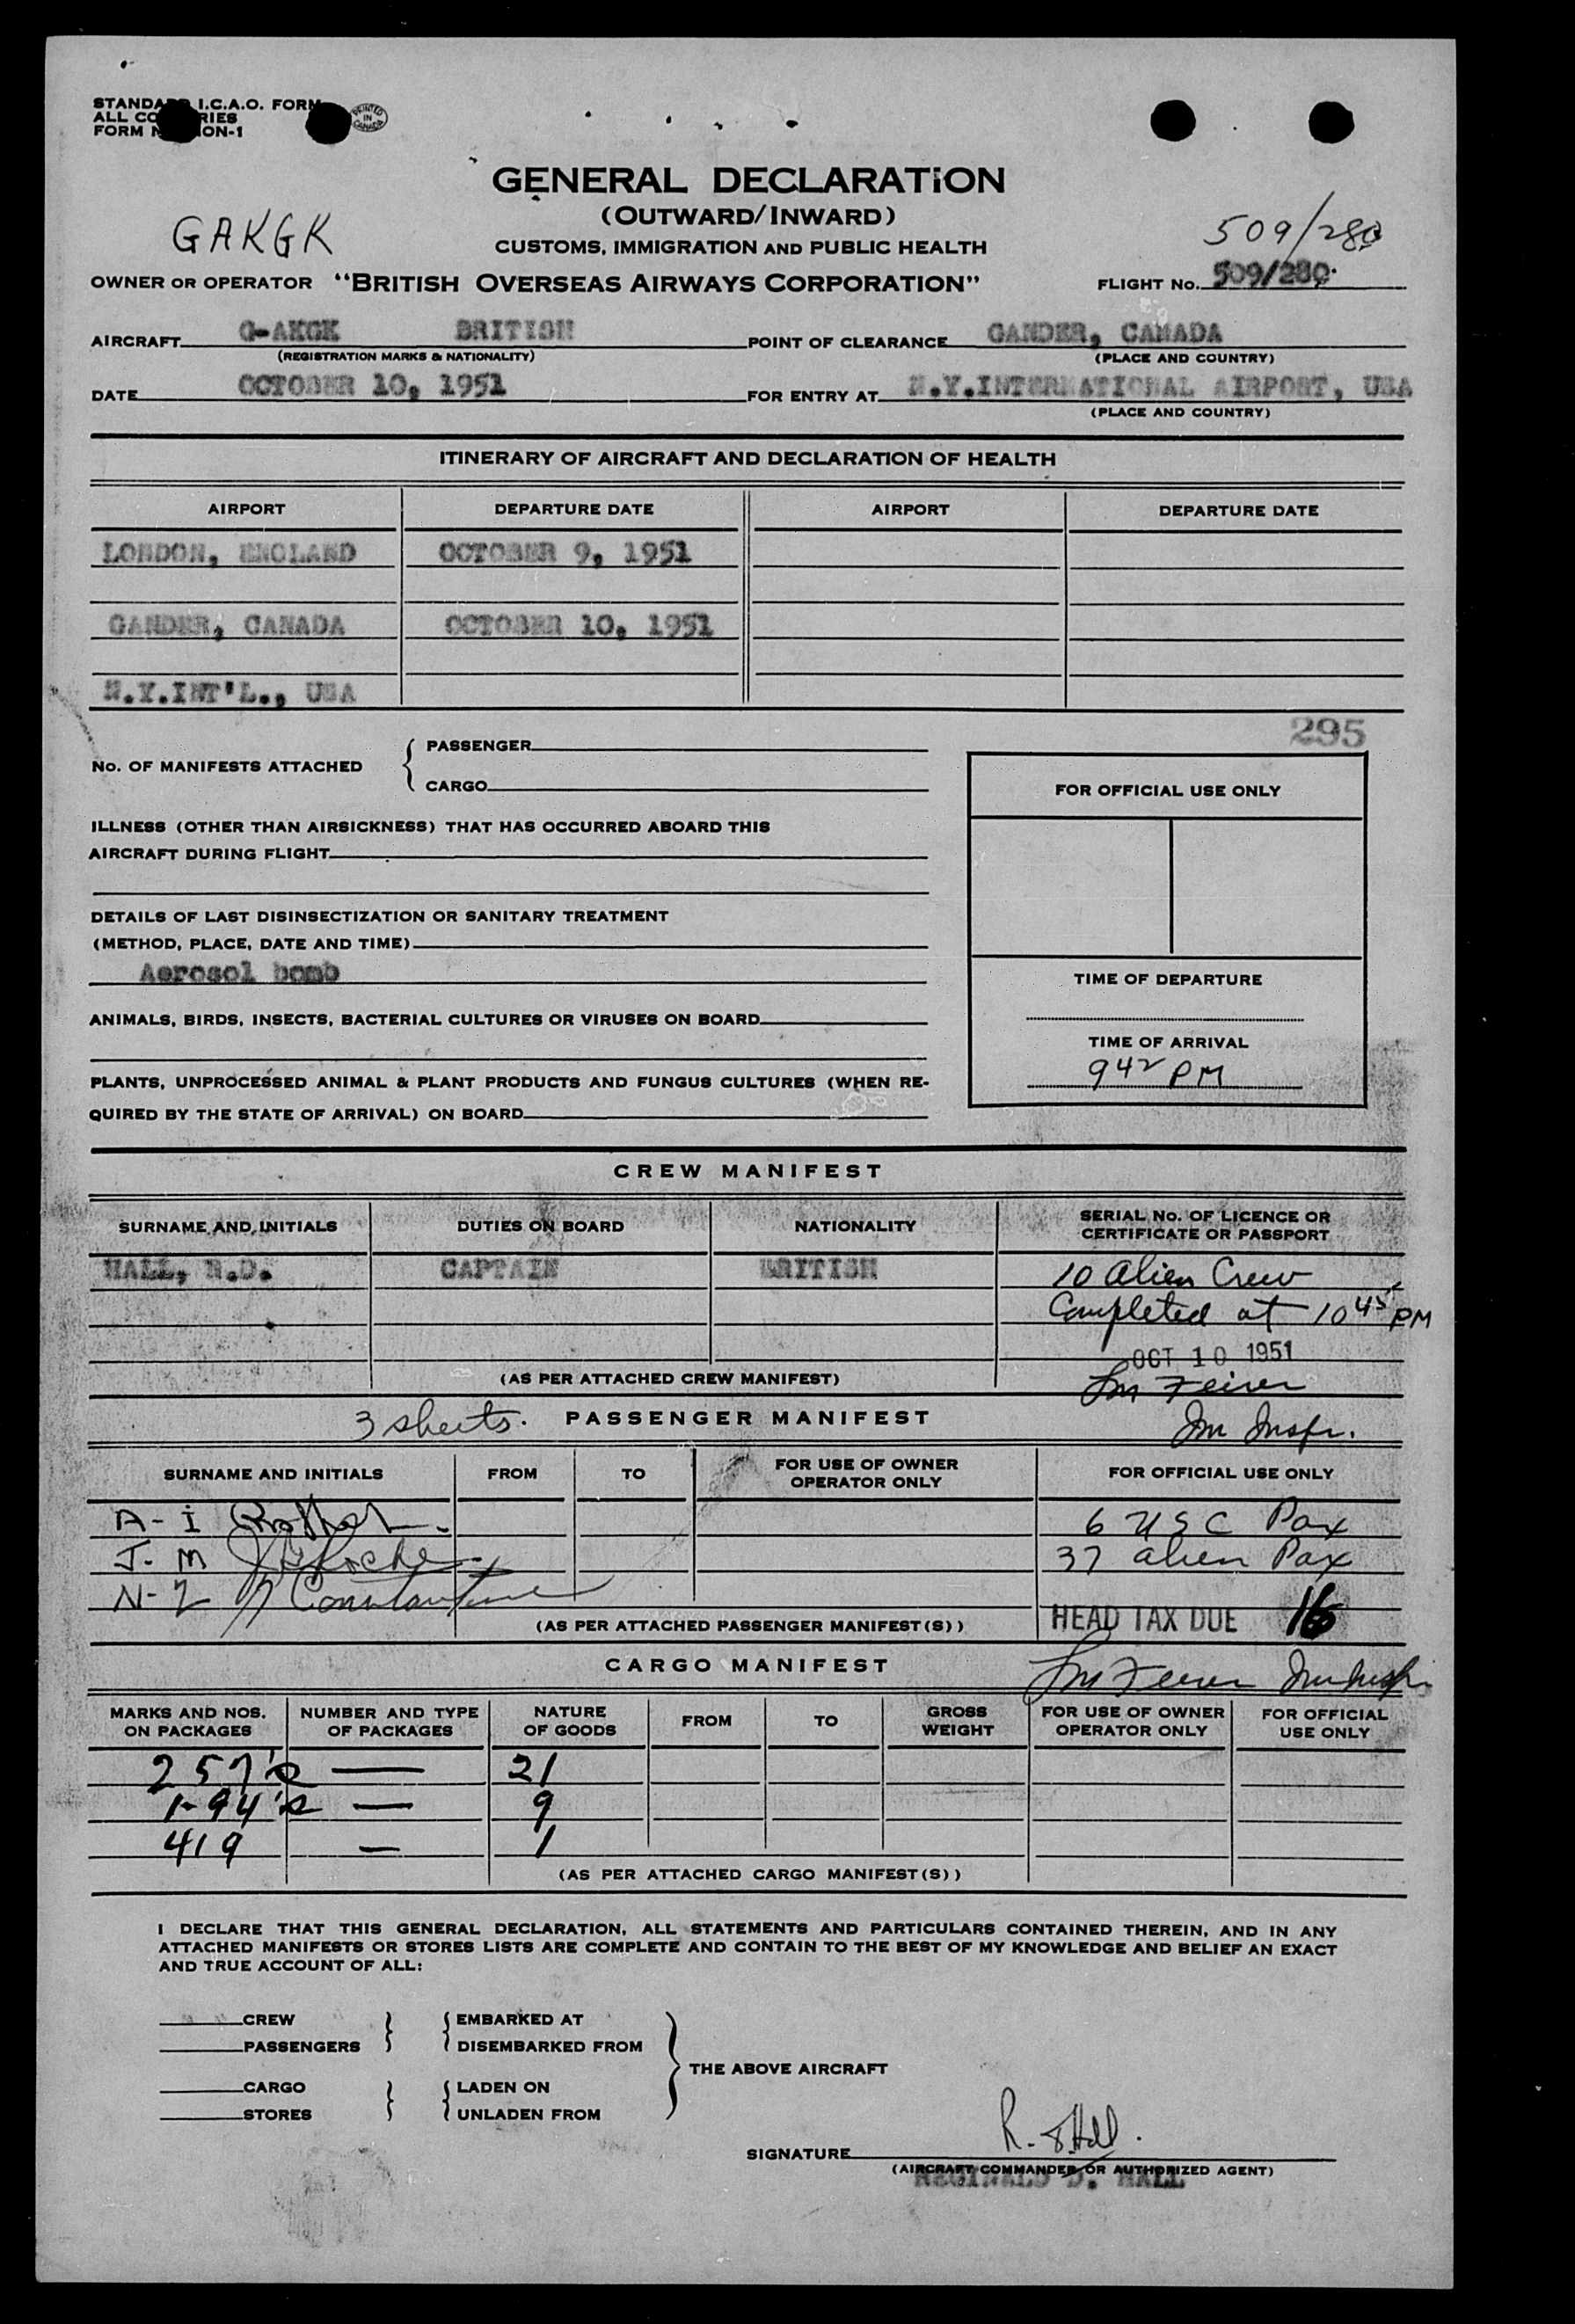 STANDARD I.C.A.O. FORM
ALL COUNTRIES
FORM ION-1
PRINTED IN CANADA
GENERAL DECLARATION
(OUTWARD/INWARD)
GAKGK
509/280
CUSTOMS, IMMIGRATION AND PUBLIC HEALTH
OWNER OR OPERATOR "BRITISH OVERSEAS AIRWAYS CORPORATION" FLIGHT No. 509/280.
AIRCRAFT G-AKGK BRITISH POINT OF CLEARANCE GANDER, CANADA
(REGISTRATION MARKS & NATIONALITY) (PLACE AND COUNTRY)
DATE OCTOBER 10, 1951 FOR ENTRY AT N.Y.INTERNATIONAL AIRPORT, USA
(PLACE AND COUNTRY)
ITINERARY OF AIRCRAFT AND DECLARATION OF HEALTH
AIRPORT DEPARTURE DATE AIRPORT DEPARTURE DATE
LONDON, ENGLAND OCTOBER 9, 1951
GANDER, CANADA OCTOBER 10, 1951
N.Y.INT'L., USA
295
No. OF MANIFESTS ATTACHED { PASSENGER
CARGO
FOR OFFICIAL USE ONLY
ILLNESS (OTHER THAN AIRSICKNESS) THAT HAS OCCURRED ABOARD THIS
AIRCRAFT DURING FLIGHT
DETAILS OF LAST DISINSECTIZATION OR SANITARY TREATMENT
(METHOD, PLACE, DATE AND TIME)
Aerosol bomb
TIME OF DEPARTURE
ANIMALS, BIRDS, INSECTS, BACTERIAL CULTURES OR VIRUSES ON BOARD
TIME OF ARRIVAL
942 PM
PLANTS, UNPROCESSED ANIMAL & PLANT PRODUCTS AND FUNGUS CULTURES (WHEN RE-
QUIRED BY THE STATE OF ARRIVAL) ON BOARD
CREW MANIFEST
SURNAME AND INITIALS DUTIES ON BOARD NATIONALITY SERIAL No. OF LICENCE OR
CERTIFICATE OR PASSPORT
HALL, R.D. CAPTAIN BRITISH 10 Alien Crew
Completed at 1045 PM
OCT 10 1951
(AS PER ATTACHED CREW MANIFEST)
3 sheets. PASSENGER MANIFEST Im Inspr.
SURNAME AND INITIALS FROM TO FOR USE OF OWNER
OPERATOR ONLY FOR OFFICIAL USE ONLY
A-I 6 USC Pax
J-M 37 alien Pax
N-Z Constantine
(AS PER ATTACHED PASSENGER MANIFEST(S)) HEAD TAX DUE 16
CARGO MANIFEST
MARKS AND NOS.
ON PACKAGES NUMBER AND TYPE
OF PACKAGES NATURE
OF GOODS FROM TO GROSS
WEIGHT FOR USE OF OWNER
OPERATOR ONLY FOR OFFICIAL
USE ONLY
257's — 21
1-94's — 9
419 — 1
(AS PER ATTACHED CARGO MANIFEST(S))
I DECLARE THAT THIS GENERAL DECLARATION, ALL STATEMENTS AND PARTICULARS CONTAINED THEREIN, AND IN ANY
ATTACHED MANIFESTS OR STORES LISTS ARE COMPLETE AND CONTAIN TO THE BEST OF MY KNOWLEDGE AND BELIEF AN EXACT
AND TRUE ACCOUNT OF ALL:
CREW EMBARKED AT
PASSENGERS DISEMBARKED FROM
THE ABOVE AIRCRAFT
CARGO LADEN ON
STORES UNLADEN FROM
SIGNATURE R. D. Hall.
(AIRCRAFT COMMANDER OR AUTHORIZED AGENT)
REGINALD D. HALL